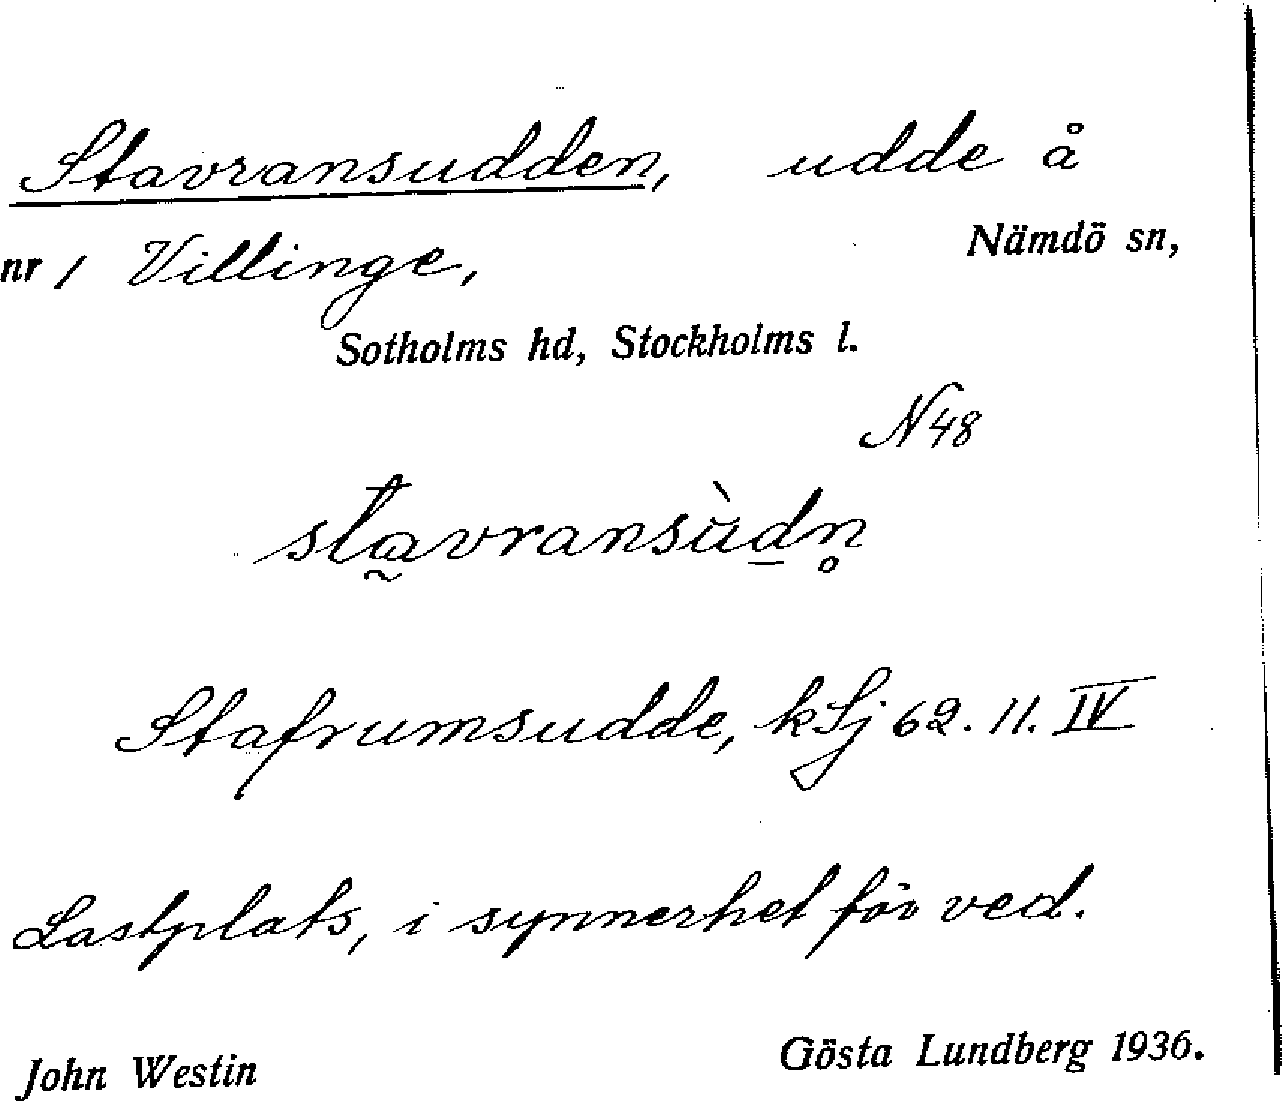 Stavransudden, udde å
nr 1 Villinge, Nämdö sn,
Sotholms hd, Stockholms l.
N48
sta̰vransùd̲n̥
Stafrumsudde, kSj 62. 11. IV
Lastplats, i synnerhet för ved.
John Westin Gösta Lundberg 1936.